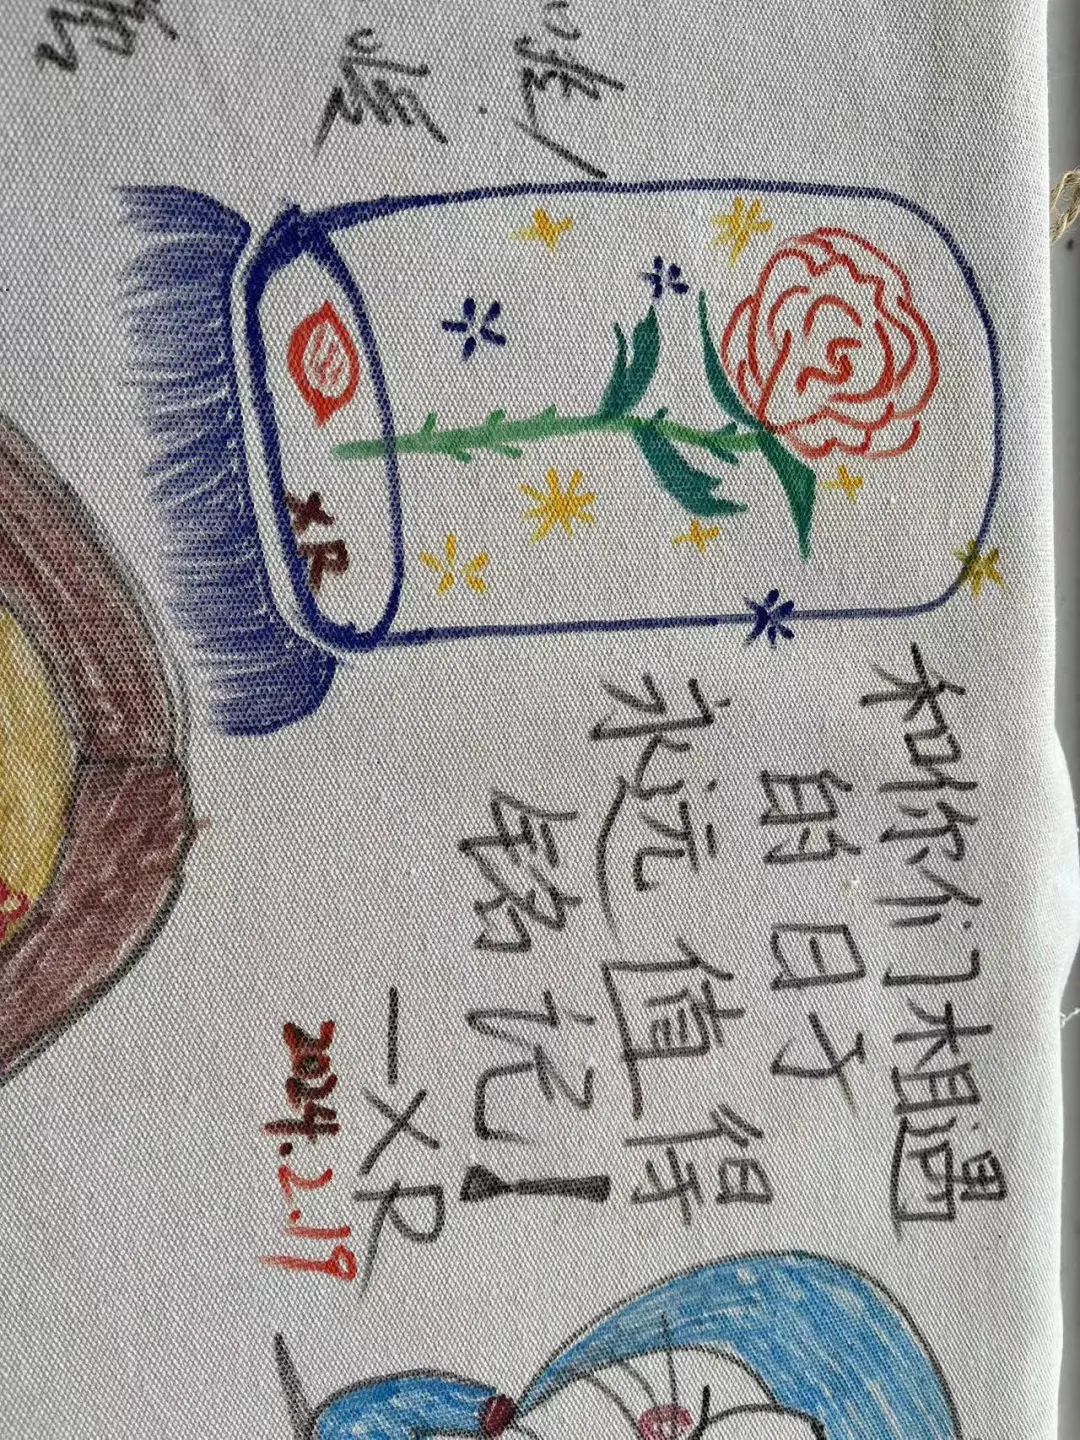 XR
和你们相遇
的日子
永远值得
铭记!
—XR
2024.2.19